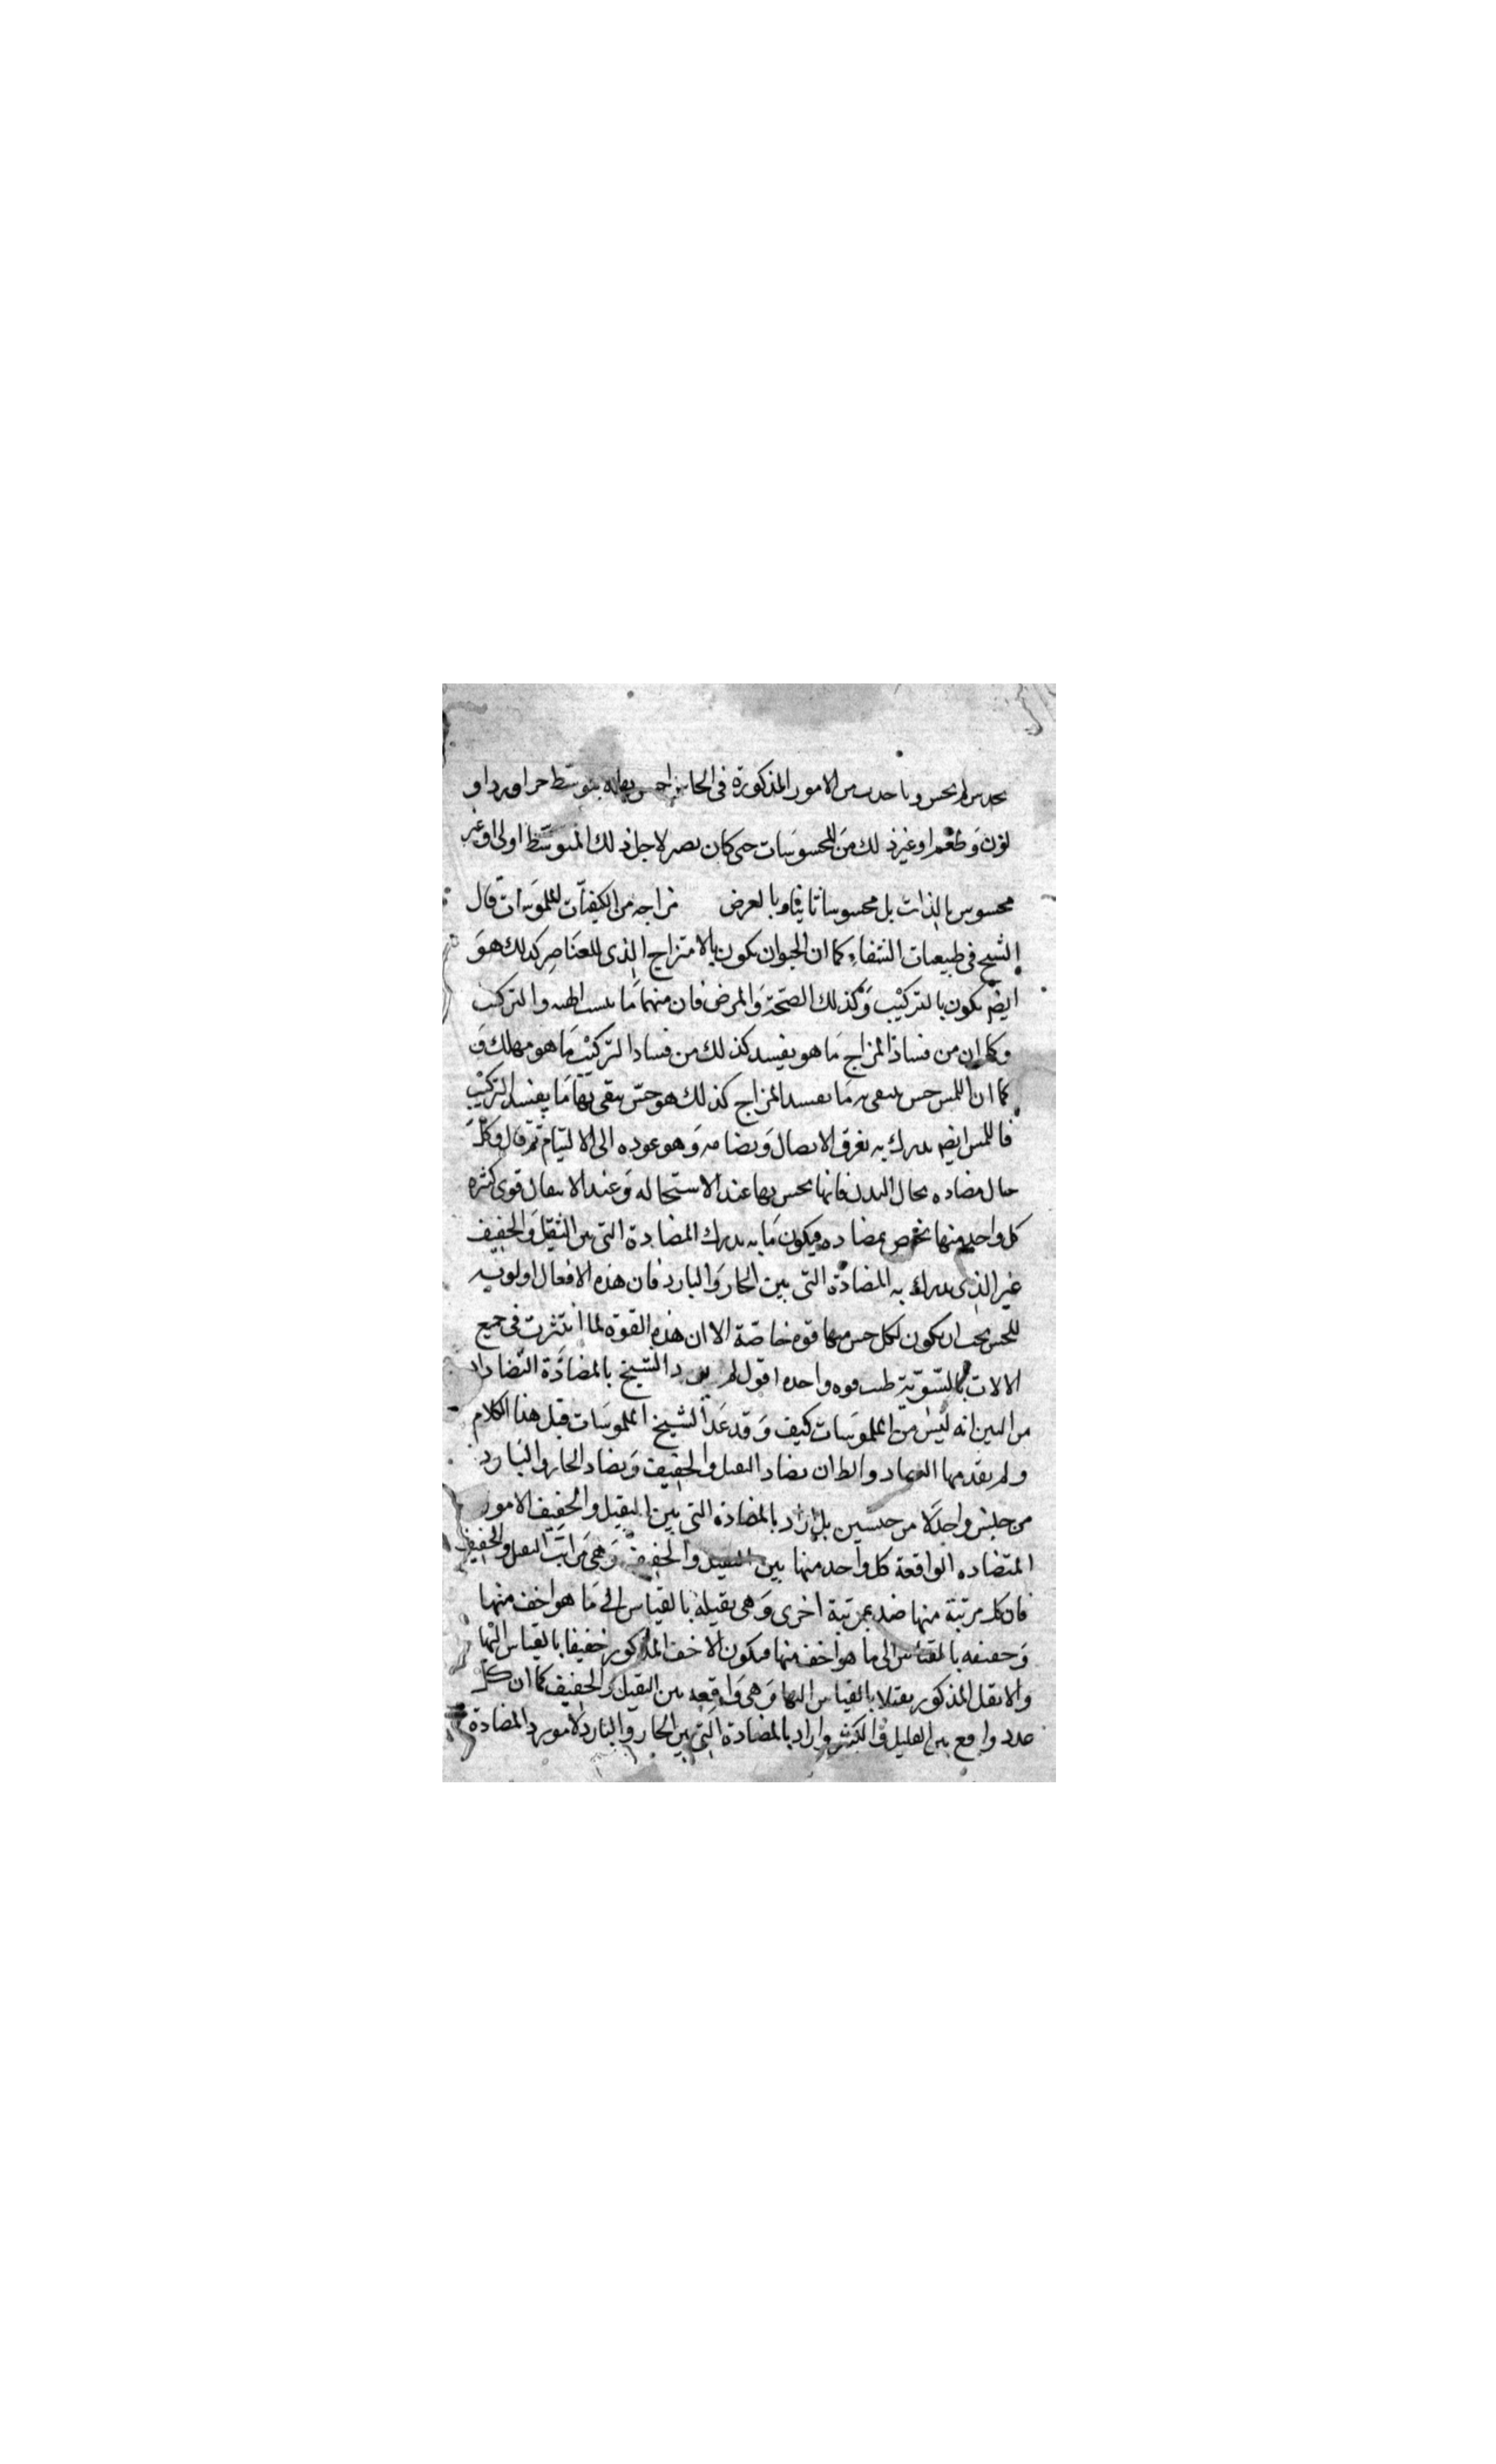 يحدس لم يحس وما حدث من الامور المذكورة في الحاس احس به بتوسط حر او برد او
لون وطعم او غير ذلك من المحسوسات حتى كان يصير لاجل ذلك المتوسط اولى او غير
محسوس بالذات بل محسوسا ثانيا وبالعرض مزاجه من الكيفيات الملموسات قال
الشيخ في طبيعيات الشفاء كما ان الحيوان يكون بالامتزاج الذي للعناصر كذلك هو
ايضم يكون بالتركيب وكذلك الصحة والمرض فان منهما ما والتركيب
وكما ان من فساد المزاج ما هو يفسد كذلك من فساد التركيب ما هو مهلك و
كما ان اللمس حس يتقى به ما يفسد المزاج كذلك هو حس يتقى بها ما يفسد التركيب
فاللمس ايضم يدرك به تفرق الاتصال وتضامه وهو عوده الى الالتيام ثم قال وكل
حال مضاده بحال البدن فانها يحس بها عند الاستحاله وعند الانتقال قوى كثيره
كل واحد منها يختص بمضاده فيكون ما به يدرك المضادة التي بين الثقيل والخفيف
غير الذي يدرك به المضادة التي بين الحار والبارد فان هذه الافعال اوليه
للحس يجب ان يكون لكل جنس منها قوه خاصة الا ان هذه القوة لما انتشرت في جميع
الالات بالسوية ظنت قوه واحده اقول لم يرد الشيخ بالمضادة التضاد اذ
من البين انه ليس من الملموسات كيف وقد عد الشيخ الملموسات قبل هذا الكلام
ولم يعد منها التضاد والظ ان تضاد الثقيل والخفيف وتضاد الحار والبارد
من جنس واحد لا من جنسين بل اراد بالمضادة التي بين الثقيل والخفيف الامور
المتضاده الواقعة كل واحد منها بين الثقيل والخفيف وهي مراتب الثقل والخفيف
فان كل مرتبة منها ضد بمرتبة اخرى وهي ثقيله بالقياس الى ما هو اخف منها
وخفيفه بالقياس الى ما هو اخف منها فيكون الاخف المذكور خفيفا بالقياس اليها
والاثقل المذكور ثقيلا بالقياس اليها وهي واقعه بين الثقيل والخفيف كما ان كل
عدد واقع بين القليل والكثير واراد بالمضادة التي بين الحار والبارد الامور المضادة